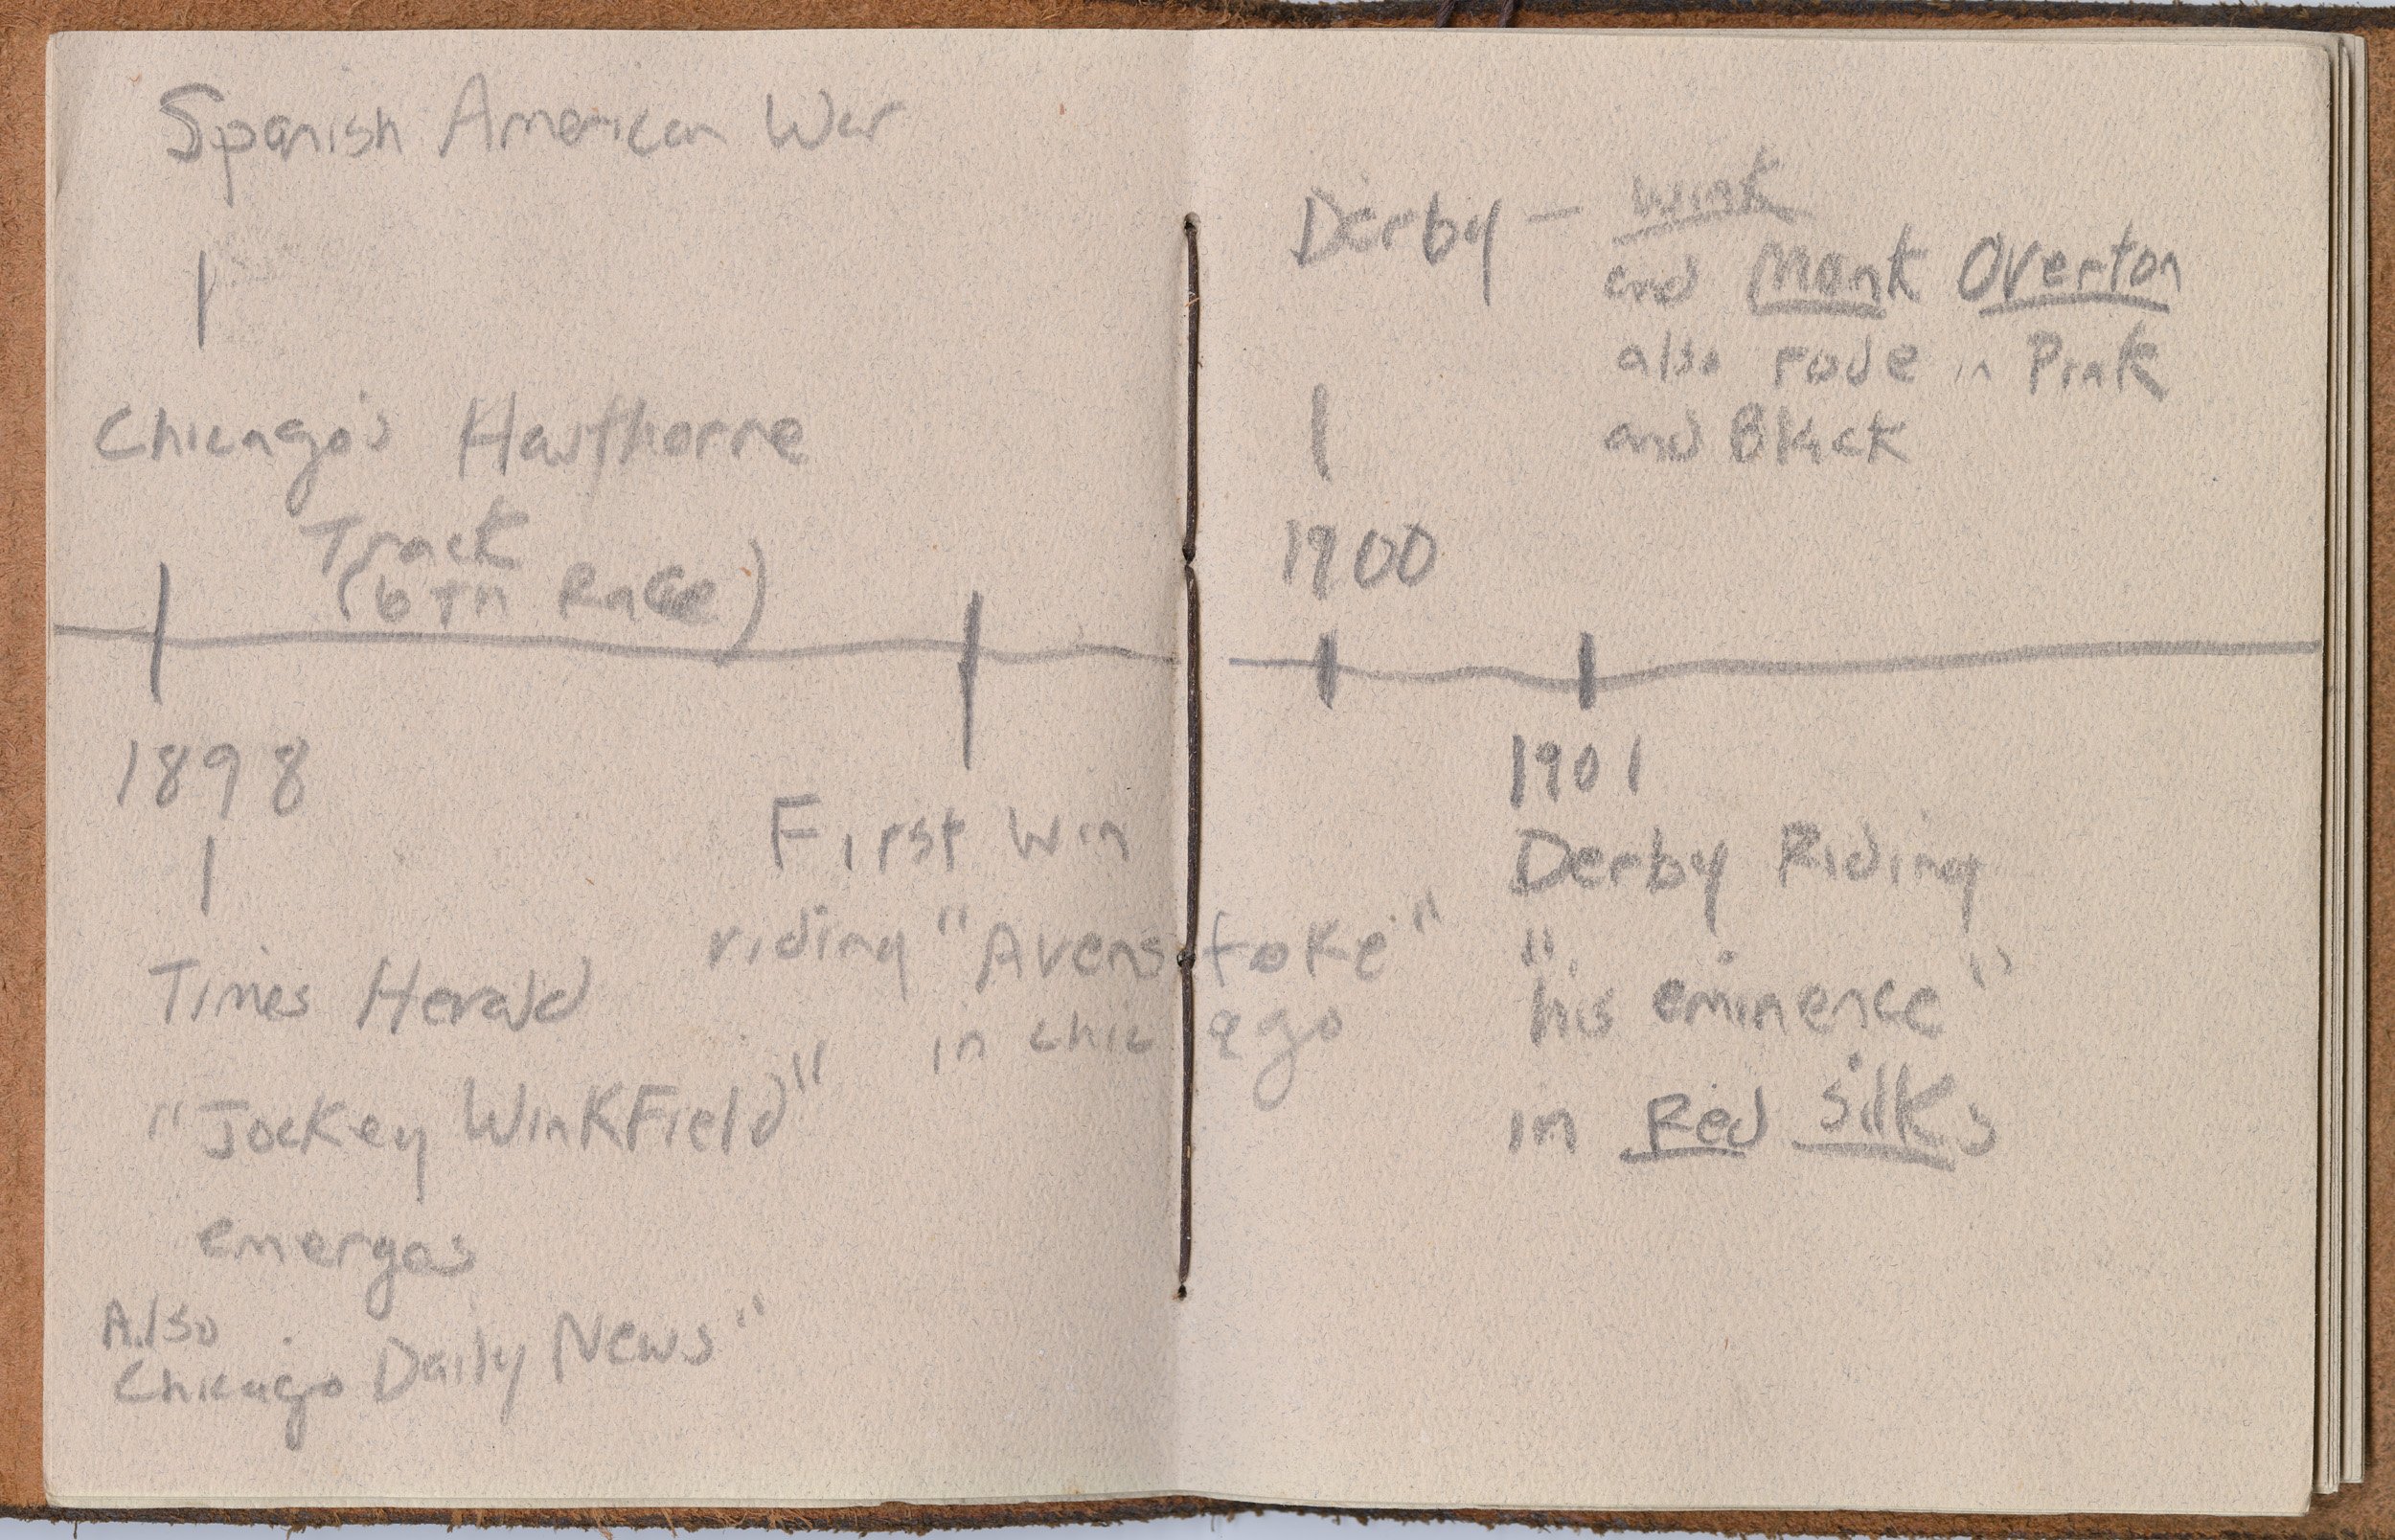 Spanish American War
Chicago's Hawthorne
Track
(6TH Race)
1898
Times Herald
"Jockey WinkField"
emerges
Also
Chicago Daily News"
First Win
riding "Avenstoke"
in chicago
Derby - Wink
and Monk Overton
also rode in Pink
and Black
1900
1901
Derby Riding
"his eminence"
in Red Silks